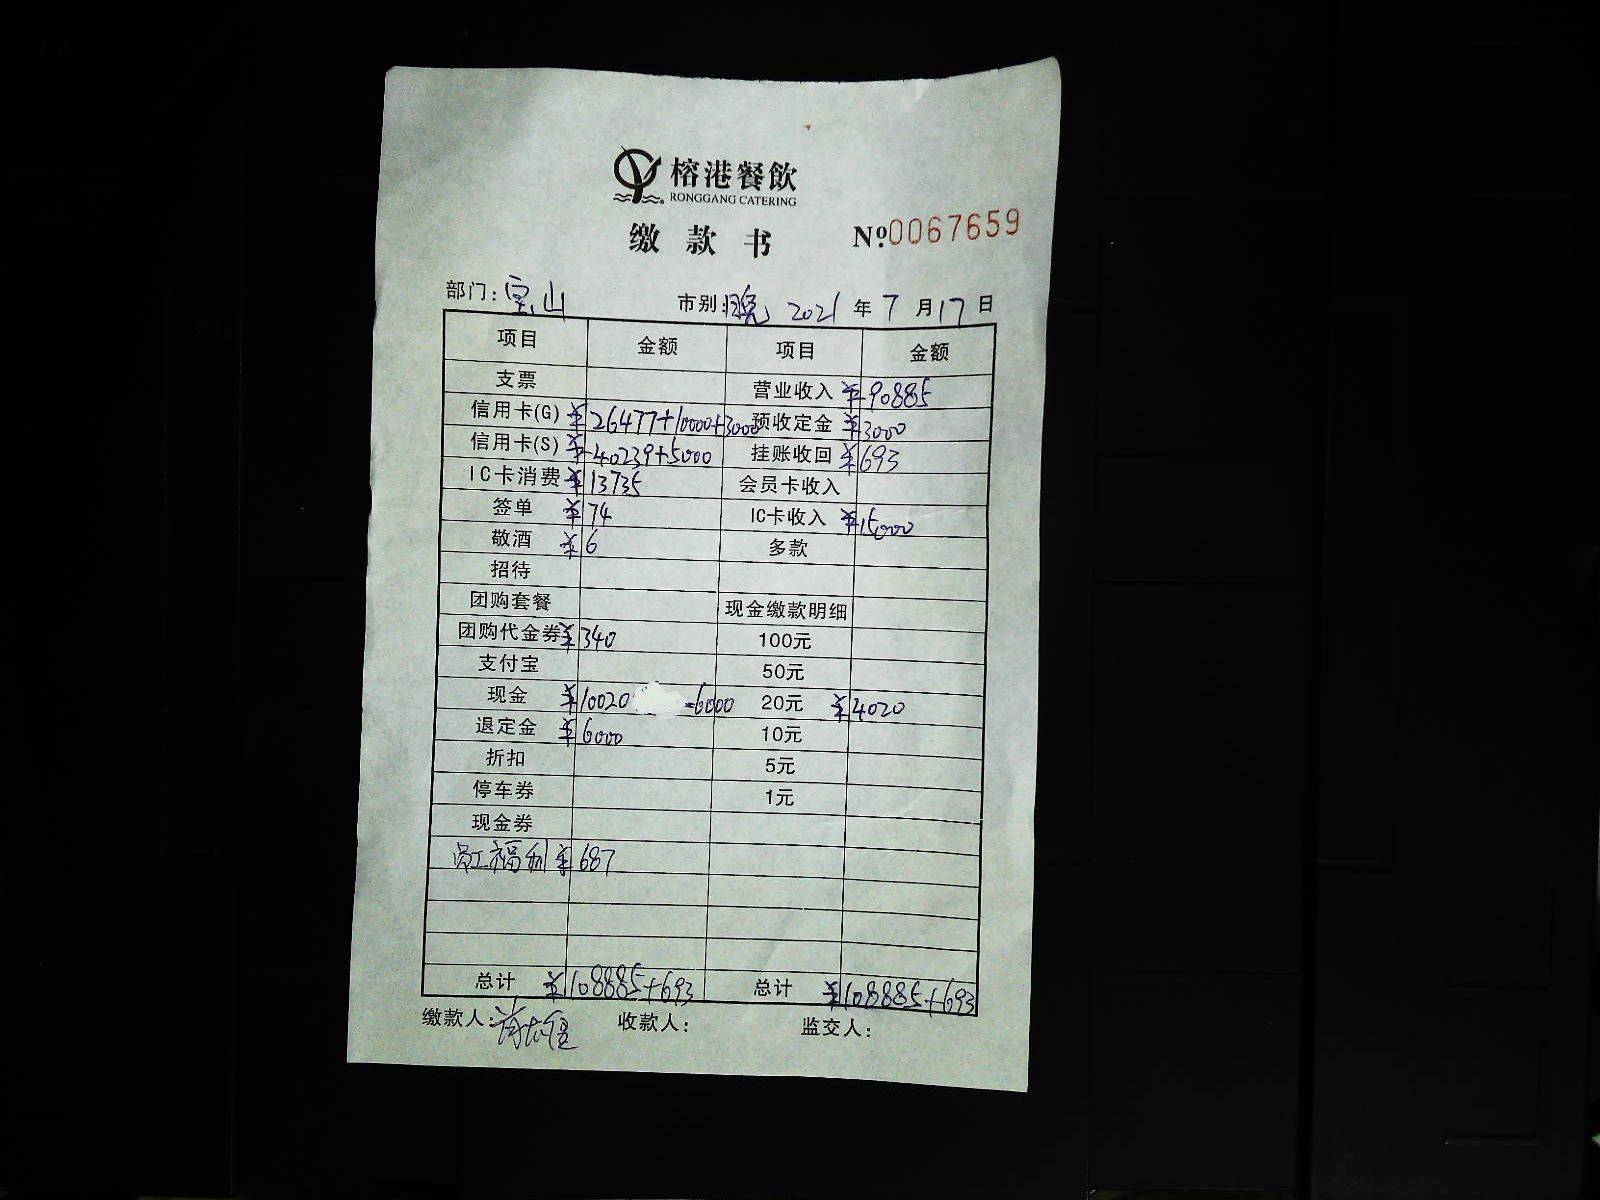 榕港餐飲
RONGGANG CATERING
缴款书 Nº 0067659
部门: 宝山 市别: 晚 2021 年 7 月 17 日
项目 金额 项目 金额
支票 营业收入 ¥90885
信用卡(G) ¥26477+10000+3000 预收定金 ¥3000
信用卡(S) ¥40239+5000 挂账收回 ¥693
IC卡消费 ¥13735 会员卡收入
签单 ¥74 IC卡收入 ¥15000
敬酒 ¥6 多款
招待
团购套餐 现金缴款明细
团购代金券 ¥340 100元
支付宝 50元
现金 ¥10020 -6000 20元 ¥4020
退定金 ¥6000 10元
折扣 5元
停车券 1元
现金券
员工福利 ¥687
总计 ¥108885+693 总计 ¥108885+693
缴款人: 收款人: 监交人: